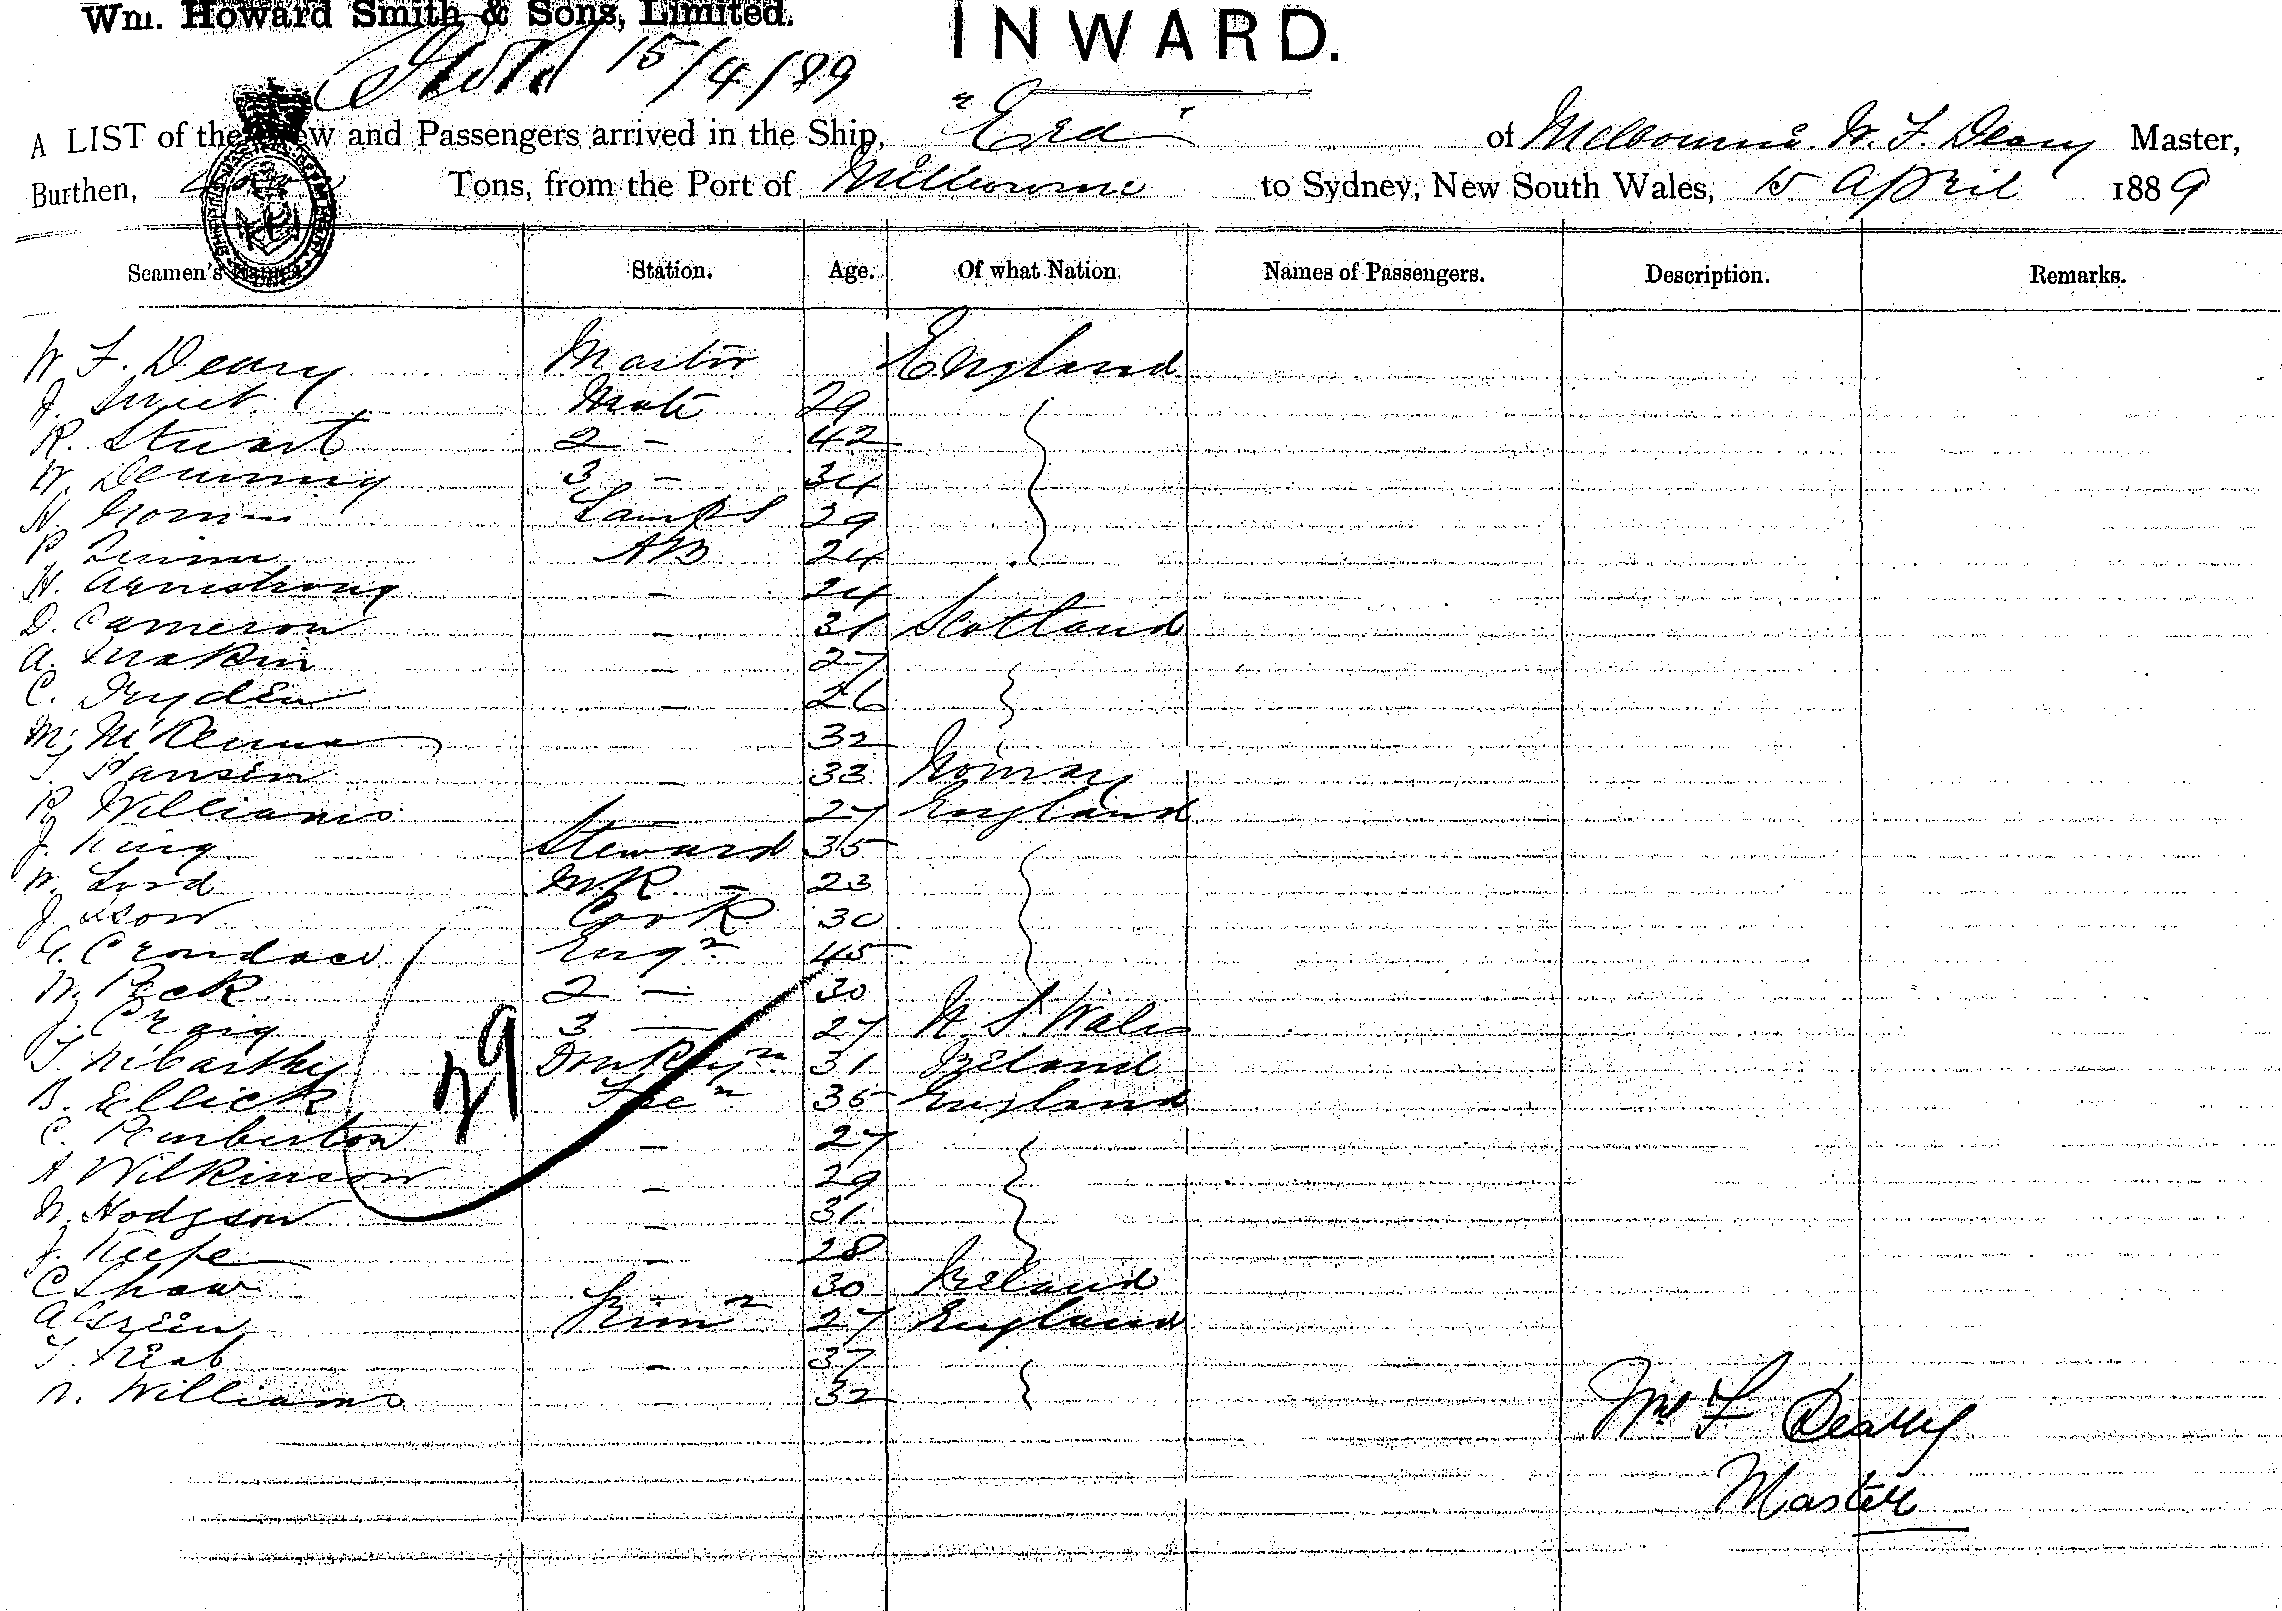 Wm. Howard Smith & Sons, Limited.
INWARD.
15/4/89
A LIST of the Crew and Passengers arrived in the Ship, "Era" of Melbourne. W. F. Deary Master,
Burthen, Tons, from the Port of Melbourne to Sydney, New South Wales, 15 April 1889
Seamen's Names. Station. Age. Of what Nation Names of Passengers. Description. Remarks.
W. F. Deary Master England
J. Mate 29
R. Stuart 2 - 42
W. 3 - 34
H. Lamps 29
P. Quinn AB 24
H. Armstrong - 24
D. Cameron - 31 Scotland
A. - 27
C. Dryden - 26
M. McKenna 32
Hansen - 33 Norway
Williams - 27 England
J. King Steward 35
W. Lord M.R. - 23
J. Cook 30
Engr 45
W. Peck 2 - 30
J. Craig 3 - 27 N S Wales
T. McCarthy Donkeyn 31 Ireland
B. Ellick 35 England
C. Pemberton - 27
A Wilkinson - 29
W. Hodgson - 31
J. Keefe - 28
C Shaw - 30 Ireland
A Green Trimr 27 England
T. - 37
Williams - 32
29
Wm F Deary
Master